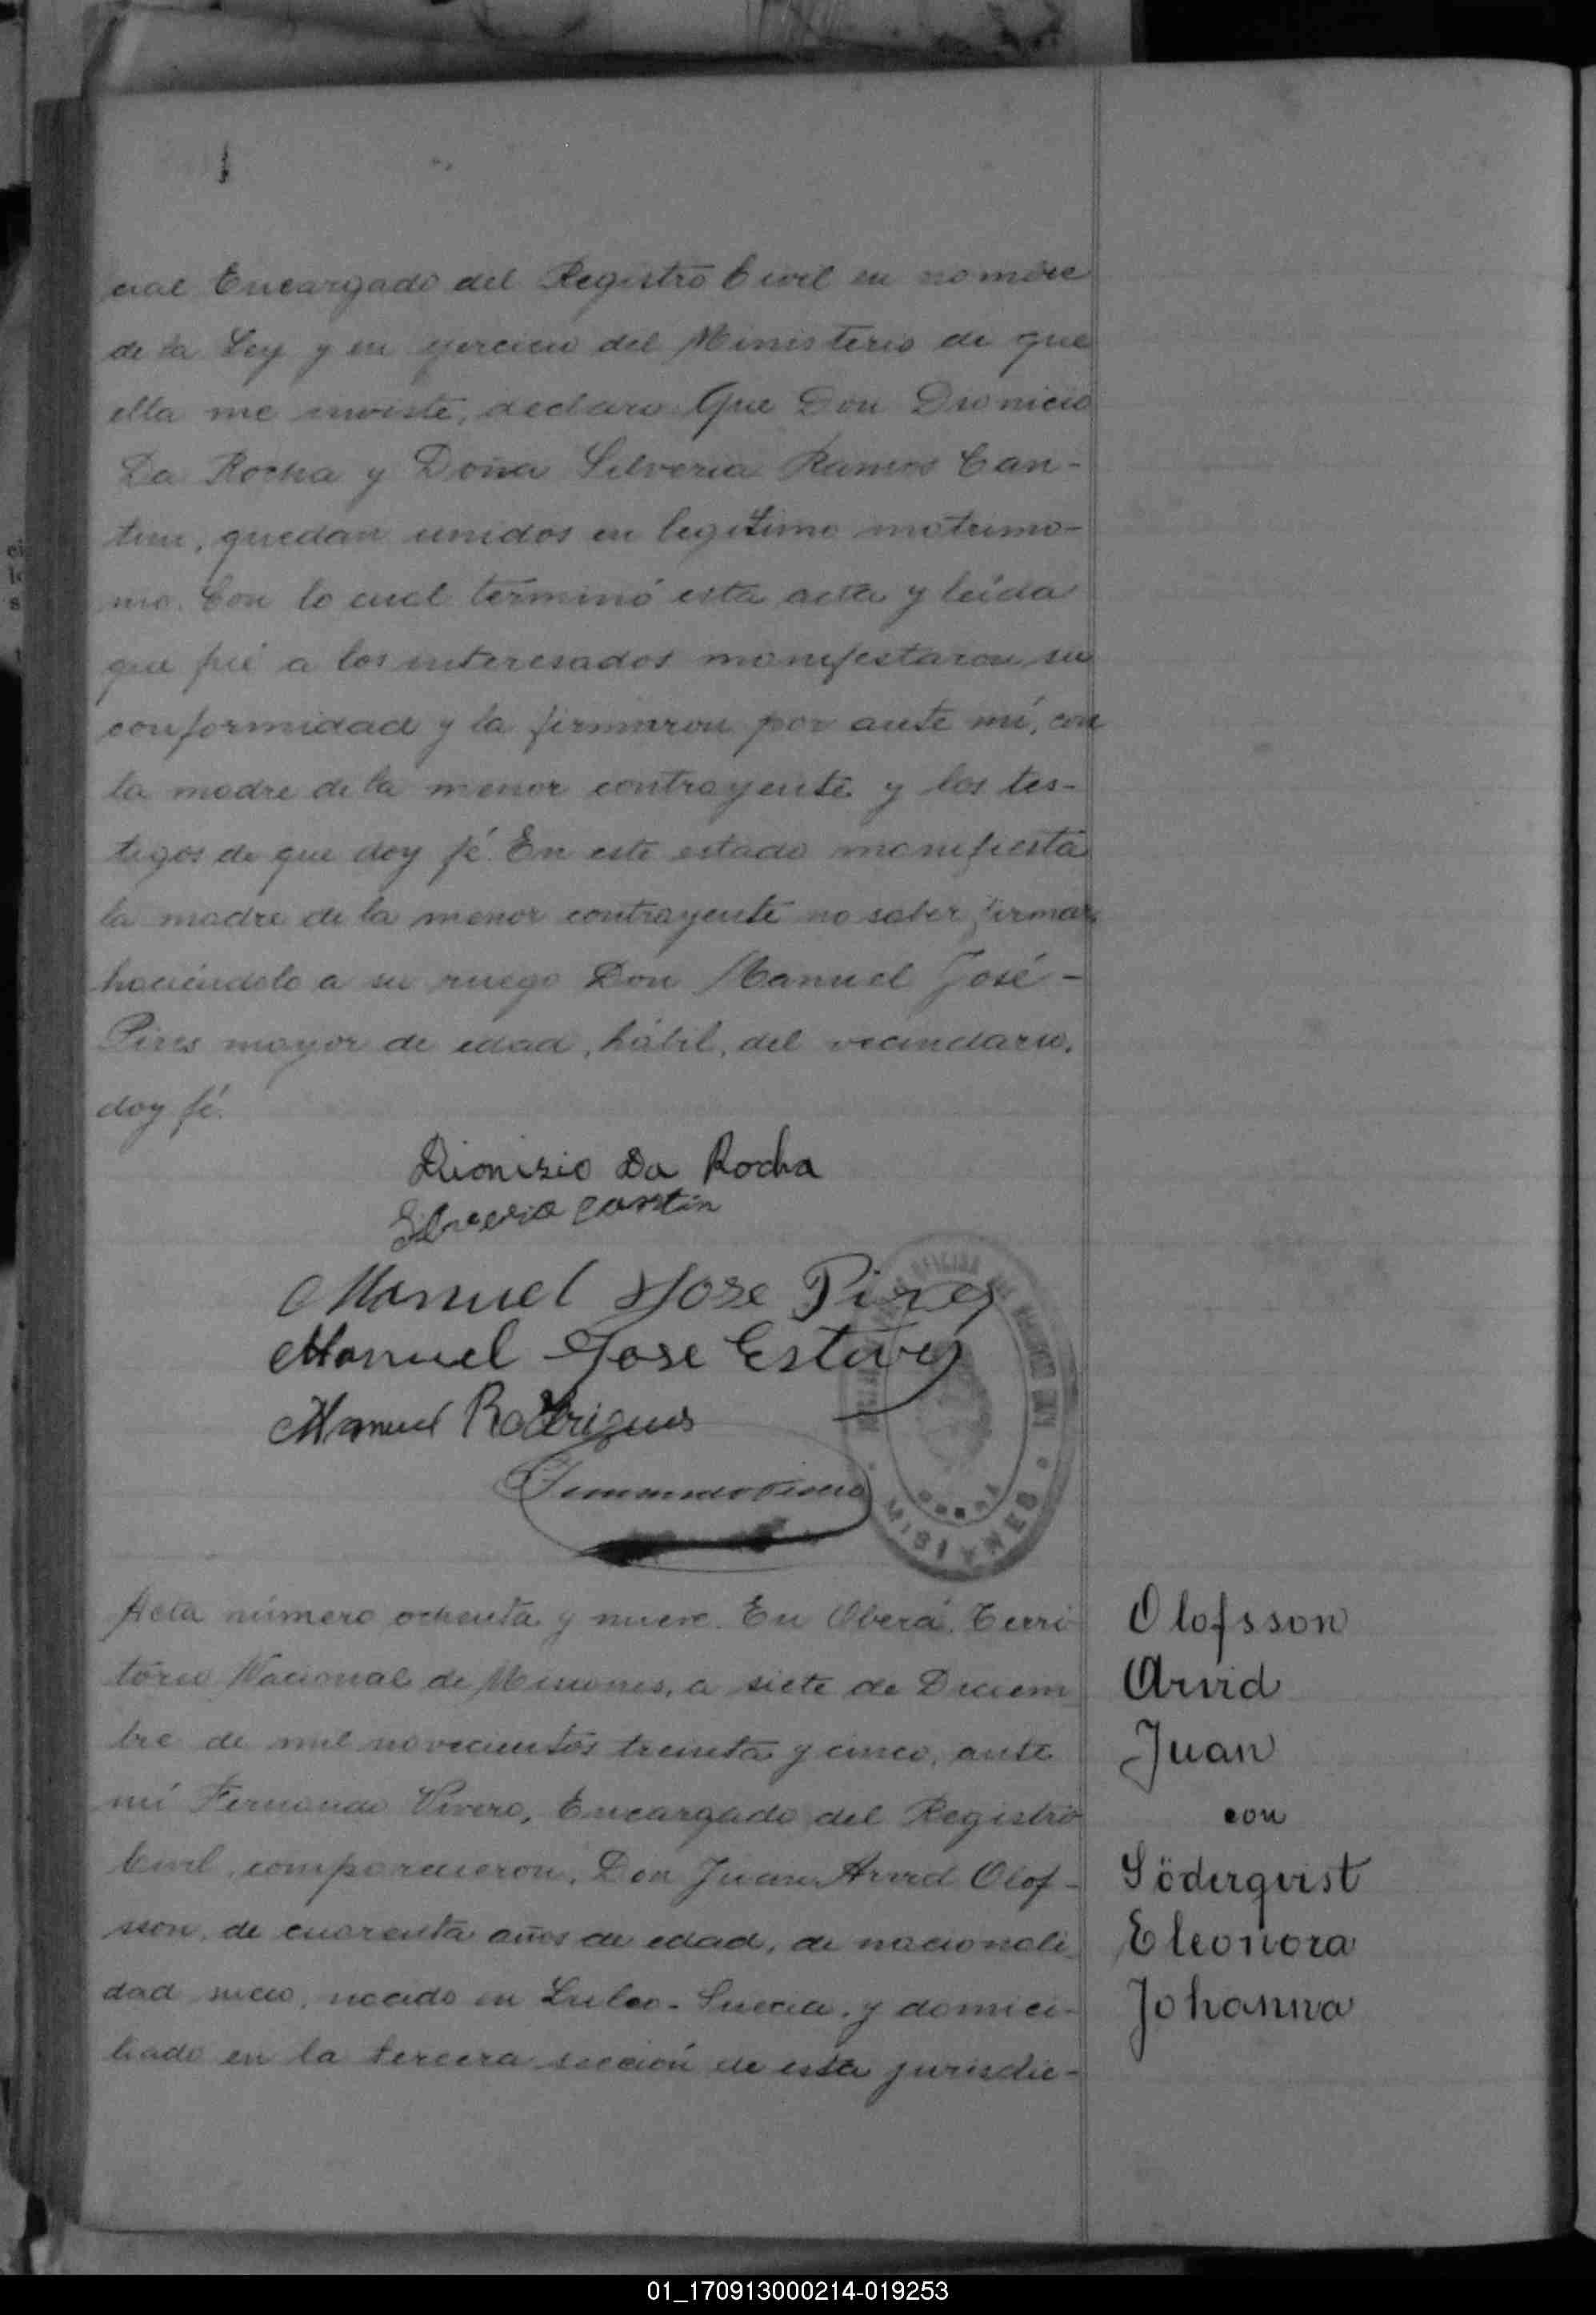 cial Encargado del Registro Civil en nombre
de la Ley y en ejercicio del Ministerio de que
ella me inviste, declaro Que Don Dionicio
Da Rocha y Doña Silveria Ramos Can-
tini, quedan unidos en legitimo matrimo-
nio. Con lo cual terminó esta acta y leída
que fué a los interesados manifestaron su
conformidad y la firmaron por ante mí, con
la madre de la menor contrayente y los tes-
tigos de que doy fé. En este estado manifiesta
la madre de la menor contrayente no saber firmar
haciéndolo a su ruego Don Manuel José -
Pires mayor de edad, hábil, del vecindario,
doy fé.
Dionisio Da Rocha
Manuel Jose Pires
Manuel Jose
Manuel Rodrigues
MISIONES
Acta número ochenta y nueve. En Oberá, Terri
torio Nacional de Misiones, a siete de Diciem
bre de mil novecientos treinta y cinco, ante
mí Fernando Vivero, Encargado del Registro
Civil, comparecieron, Don Juan Arvid Olof-
sson, de cuarenta años de edad, de nacionali
dad sueco, nacido en Luleo - Suecia, y domici-
liado en la tercera sección de esta jurisdic-
Olofsson
Arvid
Juan
con
Söderqvist
Eleonora
Johanna
01_170913000214-019253